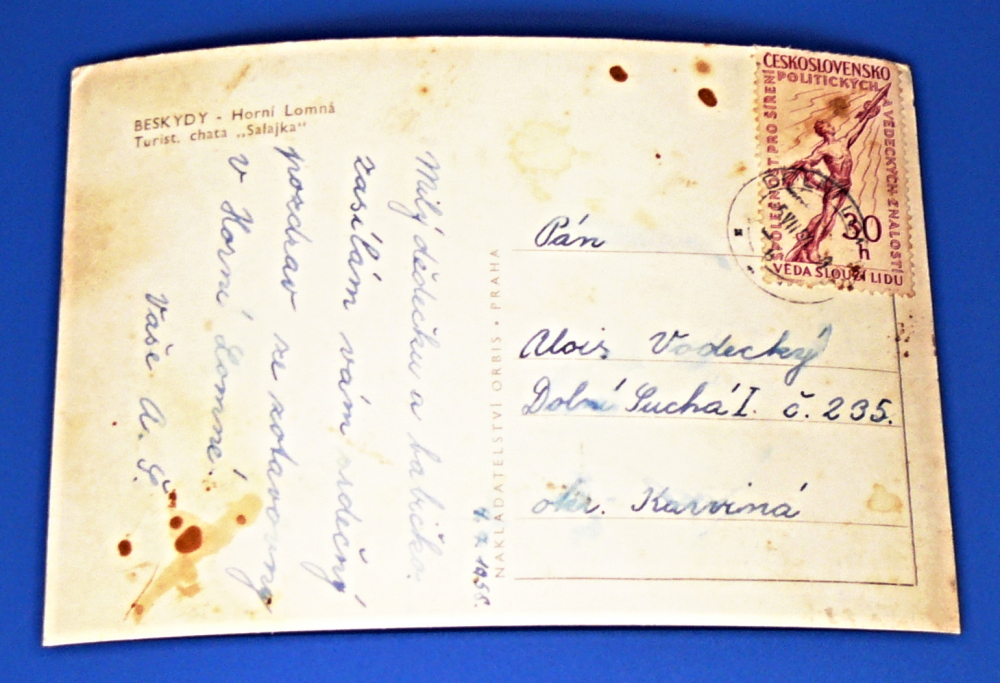 BESKYDY - Horní Lomná
Turist. chata „Salajka"
4. 7. 1958.
Milý dědečku a babičko.
zasílám vám srdečný
pozdrav ze zotavovny
v Horní Lomné!
Vaše A. Š.
NAKLADATELSTVÍ ORBIS • PRAHA
ČESKOSLOVENSKO
SPOLEČNOST PRO ŠÍŘENÍ
POLITICKÝCH
A VĚDECKÝCH ZNALOSTÍ
30
h
VĚDA SLOUŽÍ LIDU
Pán
Alois Vodecký
Dolní Suchá I. č. 235.
okr. Karviná